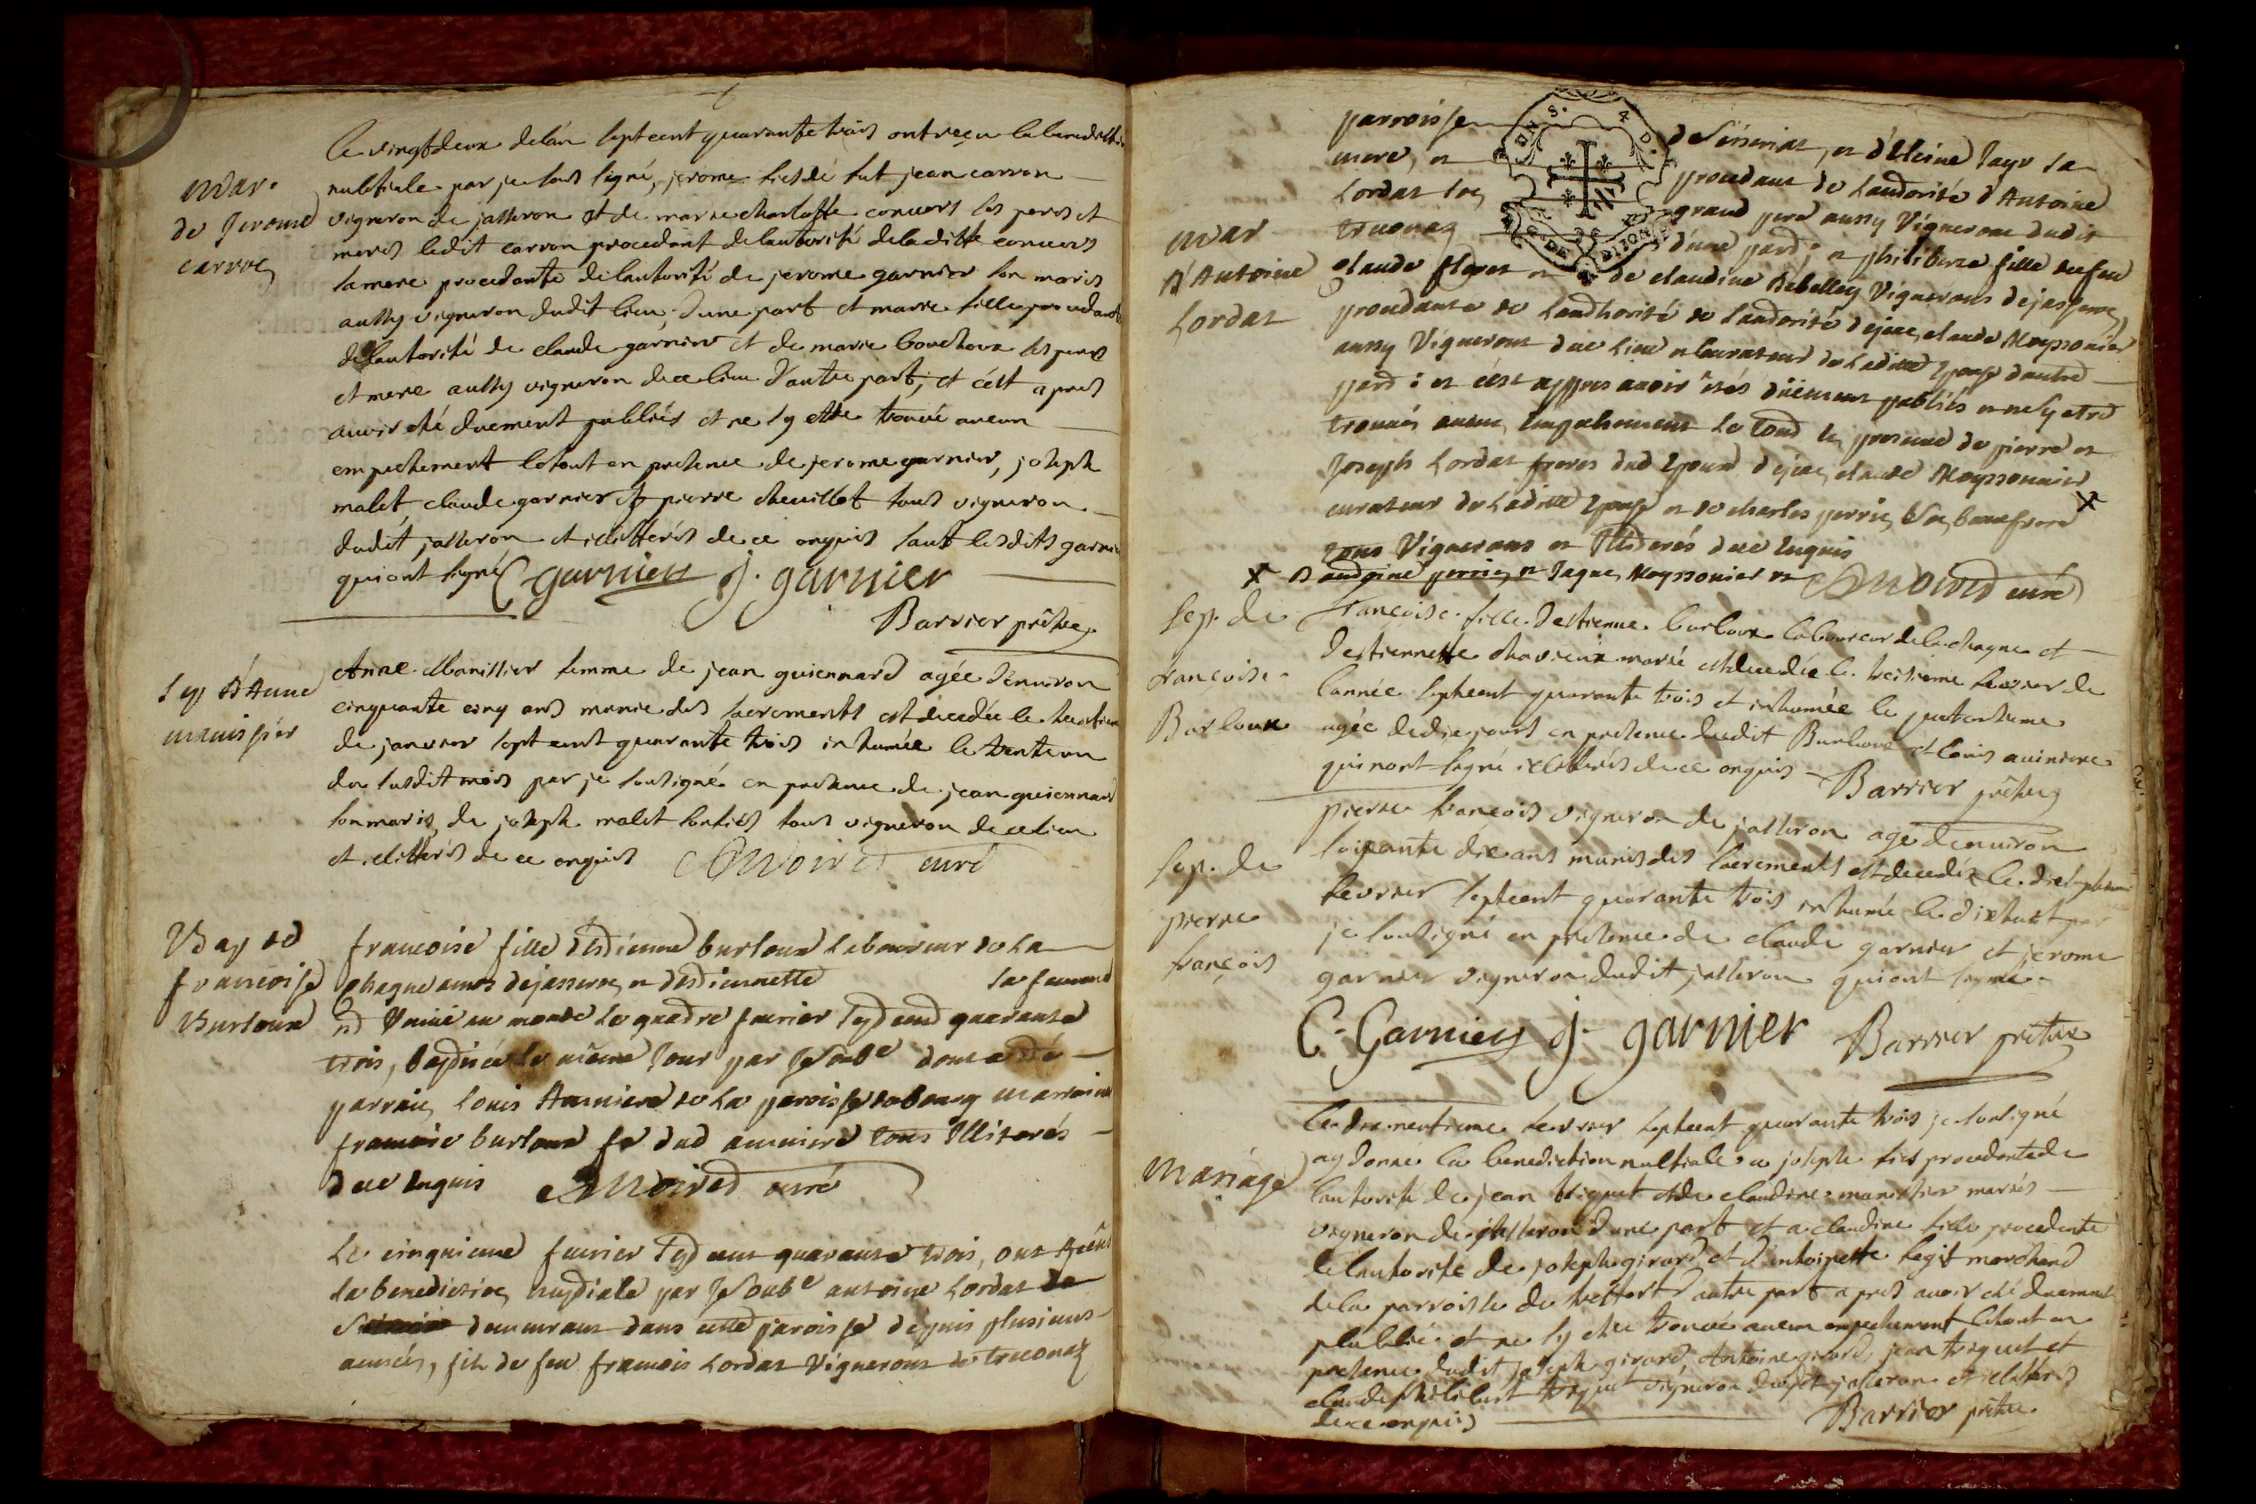 mar.
de Jerome
carron
le vingt deux de lan sept cent quarante trois ont reçu la benediction
nubtiale par je sous signé, jerome fils de fut jean carron
vigneron de jasseron et de marie charlotte convers ses peres et
meres ledit carron procedant de lautorité de laditte convers
sa mere procedante de lautorité de jerome garnier son maris
aussy vigneron dudit lieu, d'une part et marie fille procedante
de lautorité de claude garnier et de marie bouchoux ses pere
et mere aussy vigneron de ce lieu d'autre part, et c'est apres
avoir été duement publiés et ne s'y etre trouvé aucun
empechement le tout en presence de jerome garnier, joseph
malet claude garnier et pierre chevillet tous vigneron
dudit jasseron et illitterés de ce enquis sauf lesdits garnier
qui ont signé C garnier j. garnier
Barrier prêtre
Sep d'Anne
manissier
Anne Manissier femme de jean guiennard agée d'environ
cinquante cinq ans munie des sacrements est decedée le
de janvier sept cent quarante trois inhumée le trente un
du susdit mois par je soussigné en presence de jean guiennard
son maris, de joseph malet tous vigneron de ce lieu
et illitterés de ce enquis Moiret curé
Bap de
francoise
Burloux
francoise fille d'estienne burloux laboureur de la
chagne amos de jasseron et d'estiennette sa femme
est venue au monde le quatre fevrier sept cent quarante
trois, baptisée le meme jour par je soubs.é dont a été
parrain louis Auiniere de la paroisse de bourg marraine
francoise burloux fe dud auiniere tous illiterés
de ce enquis Moiret curé
Le cinquieme fevrier sept cent quarante trois, ont receu
la benediction nuptiale par je soubs.é antoine Lordat de
demeurant dans cette paroisse depuis plusieurs
années, fils de feu francois Lordat vigneron de treconaz
mar
d'Antoine
Lordat
parroisse de Siniriat, et d'Eleine Jayr sa
mere, et procedant de lautorité d'Antoine
Lordat son grand pere aussy vigneron dudit
treconaz d'une part; et philiberte fille de feu
claude floret et de claudine Rebelley vignerons de jasseron,
procedante de lauthorité de lautorité de jean claude Moyssonier
aussy vigneron de ce lieu et curateur de laditte epouse d'autre
part: et c'est appres avoir étés duement publiés et ne s'y etre
trouvés aucun empechement le tout en presence de pierre et
Joseph Lordat freres dud epoux de jean claude Moyssonnier
curateur de laditte epouse et de charles perrin son beau frere X
tous vignerons et illiterés de ce enquis
X d'andoine perrin et Jaque Moyssonier et Moiret curé
Sep. de
françoise
Burloux
françoise fille d'estienne burloux laboureur de la chagne et
d'estiennette chavrieux marié est decedée le treisieme fevrier de
l'année sept cent quarante trois et inhumée le quatorsieme
agée de dix jours en presence dudit Burloux et louis auiniere
qui n'ont signé illitterés de ce enquis Barrier prêtre
Sep. de
pierre
françois
pierre françois vigneron de jasseron agé d'environ
soixante dix ans munis des sacrements est decedé le dix sept
fevrier sept cent quarante trois inhumé le dix huit par
je soussigné en presence de claude garnier et jerome
garnier vigneron dudit jasseron qui ont signé
C. Garnier j. garnier Barrier prêtre
Mariage
le dix neuvieme fevrier sept cent quarante trois je soussigné
ay donné la benediction nubtiale a joseph fils procedant de
lautorité de jean briquet et de claudine manissier mariés
vigneron de jasseron d'une part et a claudine fille procedente
de lautorité de joseph girard et d'antoinette legit marchand
de la parroisse de treffort d'autre part apres avoir été duement
publié et ne s'y etre trouvé aucun empechement le tout en
presence dudit joseph girard, Antoine girard, jean briquet et
claude philibert briquet vigneron dudit jasseron et illitterés
de ce enquis Barrier prêtre